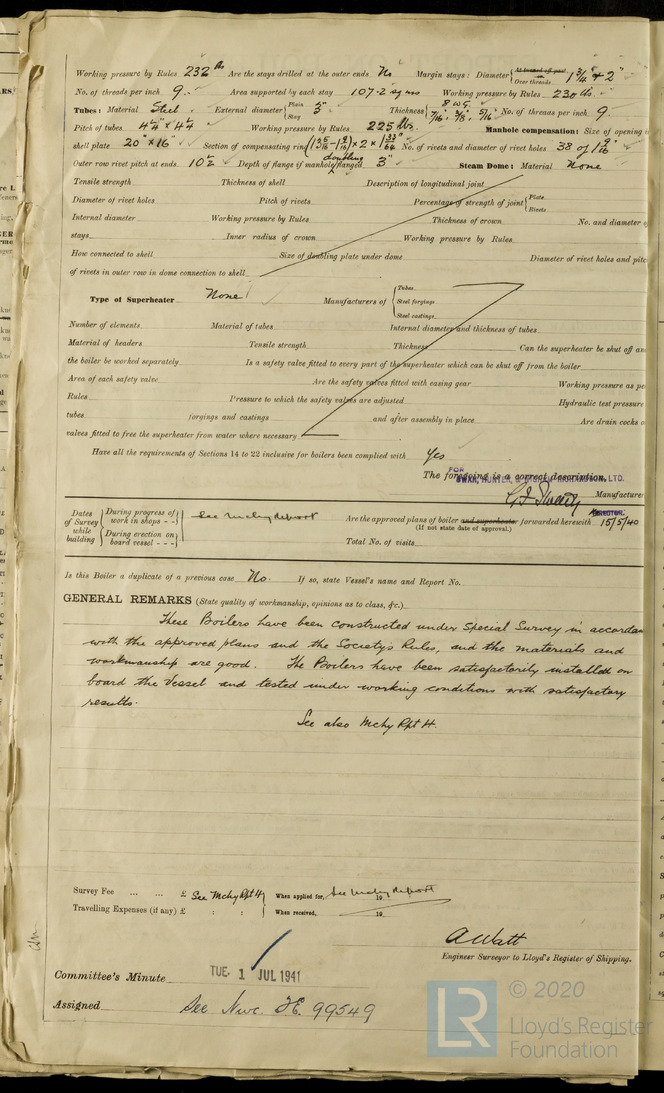 Working pressure by Rules 232 lbs Are the stays drilled at the outer ends No Margin stays: Diameter { At turned off part Over threads 1 3/4" & 2"
No. of threads per inch 9 Area supported by each stay 107.2 sq ins Working pressure by Rules 230 lbs.
Tubes: Material Steel External diameter { Plain Stay 3" Thickness { 8 WG. 7/16", 3/8", 5/16" No. of threads per inch 9
Pitch of tubes 4 1/4" x 4 1/4" Working pressure by Rules 225 lbs. Manhole compensation: Size of opening i
shell plate 20" x 16" Section of compensating ring No. of rivets and diameter of rivet holes 38 of
Outer row rivet pitch at ends 10 1/2 Depth of flange if manhole flanged doubling 3" Steam Dome: Material None
Tensile strength Thickness of shell Description of longitudinal joint
Diameter of rivet holes Pitch of rivets Percentage of strength of joint { Plate Rivets
Internal diameter Working pressure by Rules Thickness of crown No. and diameter o
stays Inner radius of crown Working pressure by Rules
How connected to shell Size of doubling plate under dome Diameter of rivet holes and pitc
of rivets in outer row in dome connection to shell
Type of Superheater None Manufacturers of { Tubes Steel forgings Steel castings
Number of elements Material of tubes Internal diameter and thickness of tubes
Material of headers Tensile strength Thickness Can the superheater be shut off an
the boiler be worked separately Is a safety valve fitted to every part of the superheater which can be shut off from the boiler
Area of each safety valve Are the safety valves fitted with easing gear Working pressure as pe
Rules Pressure to which the safety valves are adjusted Hydraulic test pressure
tubes forgings and castings and after assembly in place Are drain cocks o
valves fitted to free the superheater from water where necessary
Have all the requirements of Sections 14 to 22 inclusive for boilers been complied with Yes
The foregoing is a correct description,
FOR SWAN, HUNTER, & WIGHAM RICHARDSON, LTD.
Manufacturer
DIRECTOR.
Dates of Survey while building { During progress of work in shops - - During erection on board vessel - - - } See Mchy Report Are the approved plans of boiler and superheater forwarded herewith 15/5/40
(If not state date of approval.)
Total No. of visits
Is this Boiler a duplicate of a previous case No. If so, state Vessel's name and Report No.
GENERAL REMARKS (State quality of workmanship, opinions as to class, &c.)
These Boilers have been constructed under Special Survey in accordan
with the approved plans and the Society's Rules, and the materials and
workmanship are good. The Boilers have been satisfactorily installed on
board the Vessel and tested under working conditions with satisfactory
results.
See also Mchy Rpt H.
Survey Fee ... ... £ See Mchy Rpt H When applied for, See Mchy Report 19
Travelling Expenses (if any) £ : : When received, 19
A Watt
Engineer Surveyor to Lloyd's Register of Shipping.
Committee's Minute TUE. 1 JUL 1941
Assigned See Nwc. F.E. 99549
LR © 2020
Lloyd's Register
Foundation